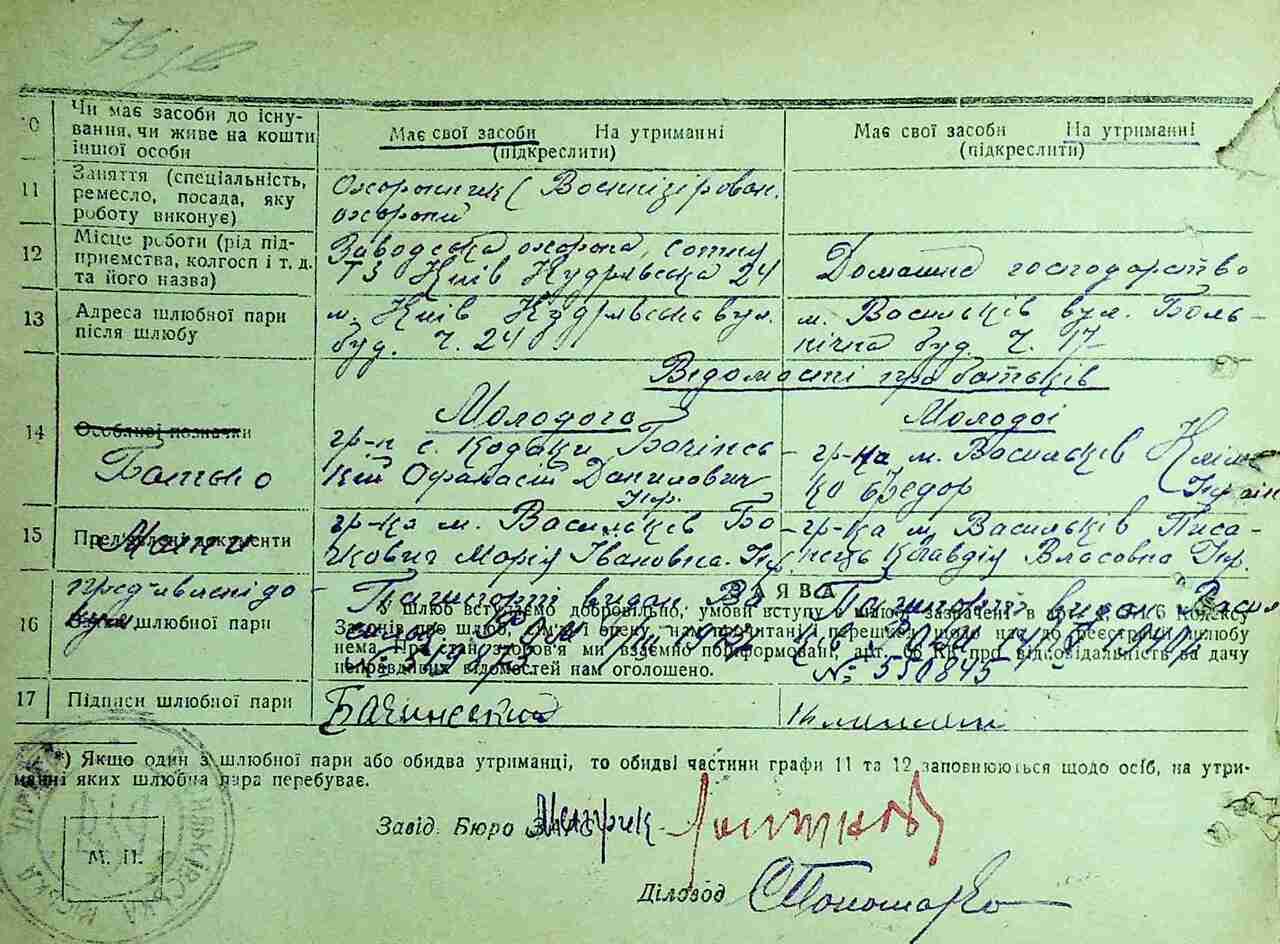 10 Чи має засоби до існу-
вання, чи живе на кошти
іншої особи
Має свої засоби На утриманні
(підкреслити)
Має свої засоби На утриманні
(підкреслити)
11 Заняття (спеціальність,
ремесло, посада, яку
роботу виконує)
Охоронник (Воєнізірован.
охорони
12 Місце роботи (рід під-
приємства, колгосп і т. д.
та його назва)
Заводська охорона, сотня
Київ Кудрявська 24
Домашнє господарство
13 Адреса шлюбної пари
після шлюбу
м. Київ Кудрявська вул.
буд. Ч. 24
м. Васильків вул. Боль-
нічна буд. Ч. 17
Ведомості про батьків
14 Особливі позначки
Батько
Молодого
гр-н с. Кодаки Бачінсь
кій Офанасій Данилович
Укр.
Молодої
гр-на м. Васильків Клімен
ко Федор Україн
15 Пред'явлені документи
Мати
гр-ка м. Васильків Бо-
Марія Івановна. Укр.
гр-ка м. Васильків Писа-
Клавдія Власовна Укр.
16 пред'явлені до
шлюбної пари
Пашпорті видан
Пашпорт видан Васил
ЗАЯВА
У шлюб вступаємо добровільно, умови вступу в шлюб, зазначені в арт. 4, 5 і 6 Кодексу
Законів про шлюб, сім'ю і опіку, нам прочитані і перешкод щодо нас до реєстрації шлюбу
нема. Про стан здоров'я ми взаємно поінформовані, арт. 68 КК про відповідальність за дачу
неправдивих відомостей нам оголошено.
№ 550845
17 Підписи шлюбної пари
Бачинский
*) Якщо один з шлюбної пари або обидва утриманці, то обидві частини графи 11 та 12 заповнюються щодо осіб, на утри-
манні яких шлюбна пара перебуває.
Завід. Бюро ЗАГС
М. П.
Діловод Пономаренко